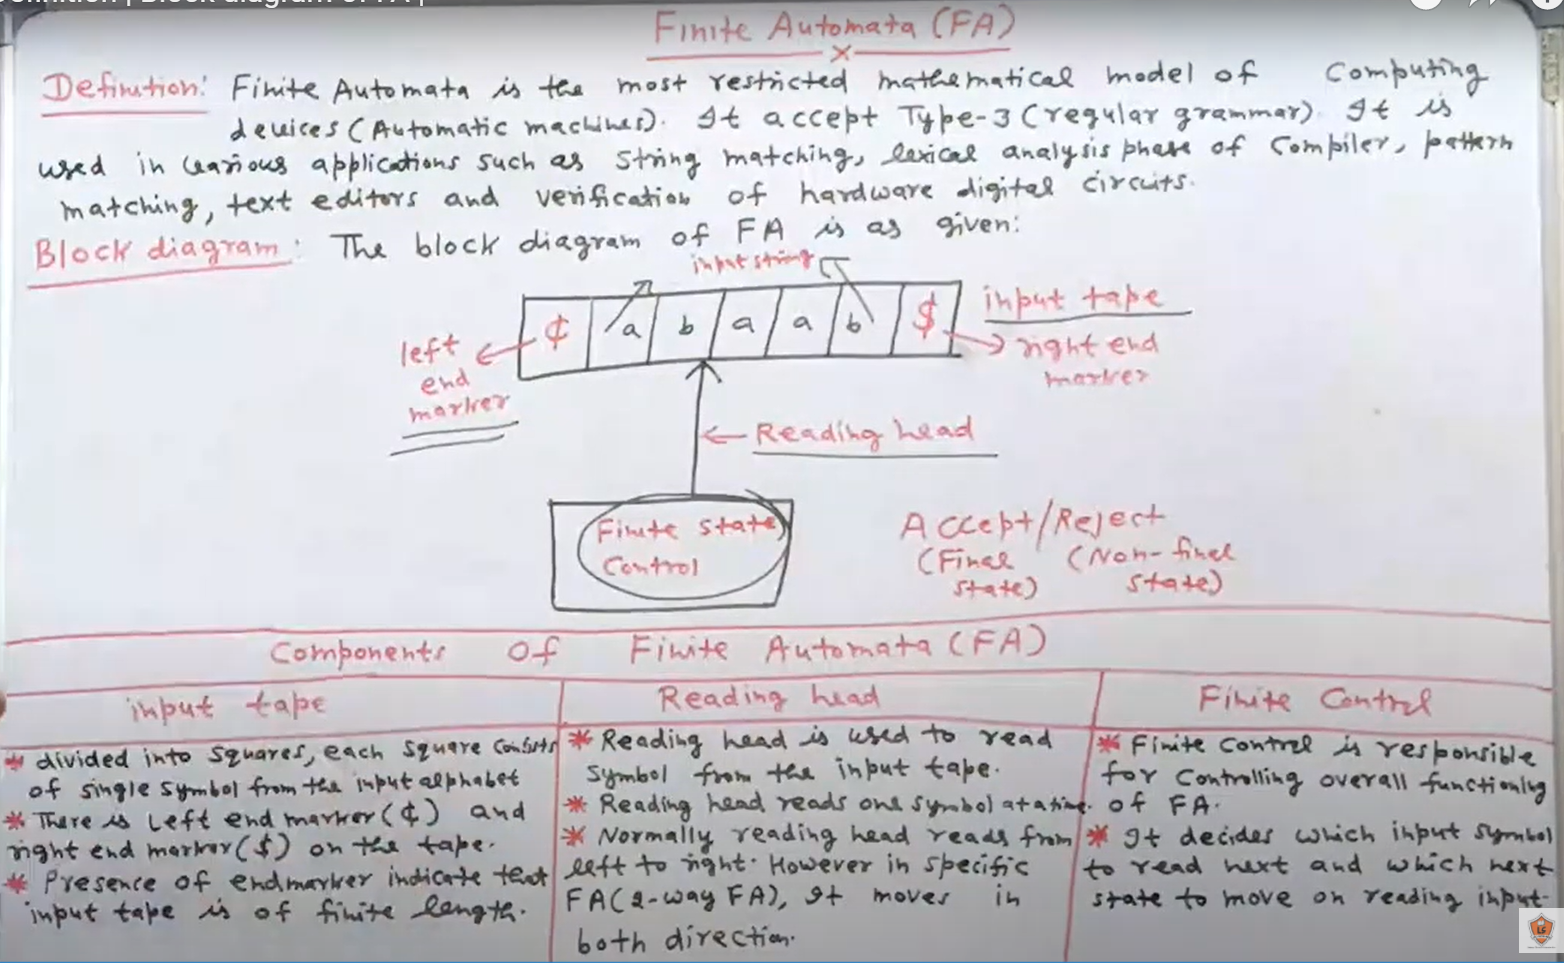 Definition | Block diagram of FA |
Finite Automata (FA)
Definition: Finite Automata is the most restricted mathematical model of Computing
devices (Automatic machines). It accept Type-3 (regular grammar). It is
used in various applications such as String matching, lexical analysis phase of Compiler, pattern
matching, text editors and verification of hardware digital circuits.
Block diagram: The block diagram of FA is as given:
input string
¢ a b a a b $
input tape
left
end
marker
right end
marker
Reading head
Finite state
Control
Accept/Reject
(Final (Non-final
state) state)
Components of Finite Automata (FA)
input tape
* divided into squares, each square consists
of single symbol from the input alphabet
* There is Left end marker (¢) and
right end marker ($) on the tape.
* Presence of endmarker indicate that
input tape is of finite length.
Reading head
* Reading head is used to read
symbol from the input tape.
* Reading head reads one symbol at a time.
* Normally reading head reads from
left to right. However in specific
FA (2-way FA), It moves in
both direction.
Finite Control
* Finite Control is responsible
for Controlling overall functioning
of FA.
* It decides which input symbol
to read next and which next
state to move on reading input.
LS